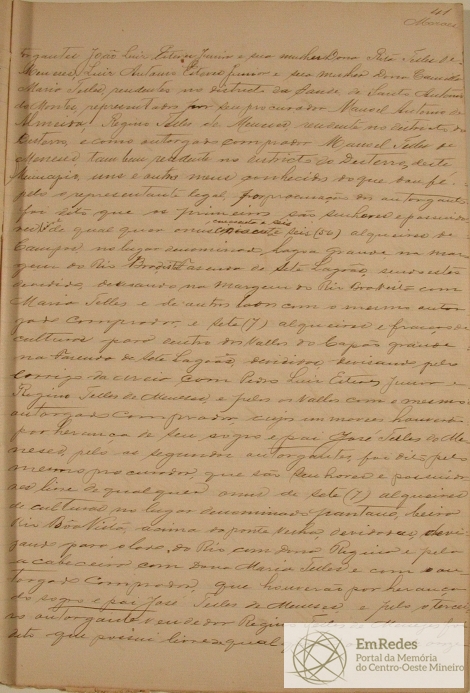 41
torgantes João Luis Esteves Junior e sua mulher Dona Rita Telles de
Menezes, Luis Antonio Esteves Junior e sua mulher Dona
Maria Telles, residentes no districto da Santo Antonio
do Monte, representados por seu procurador Manoel Antonio de
Almeida, Regino Telles de Menezes, residente no districto do
Desterro, e como outorgado comprador Manoel Telles de
Menezes tambem residente no districto do Desterro, deste
Municipio, uns e outros meus conhecidos do que dou fé,
pelo representante legal, por procuração dos outorgantes
foi dito que os primeiros são senhores e possuidores
de qual quer onus cincoenta e seis (56) alqueires de
Campos no lugar denominado Lagoa grande na mar
gem do Rio Bôa Vista fazenda de Sete Lagoas, sendo este
dividido, devisando na margem do Rio Bôa Vista com
Maria Telles e de outros lados com o mesmo outor
gado Comprador, e Sete (7) alqueires e fracção de
culturas para dentro dos Vallos do Capão grande
na Fazenda de Sete Lagôas, devisando pelo
corrego com Pedro Luis Esteves Junior e
Regino Telles de Menezes, e pelos Vallos com o mesmo
outorgado Comprador, cujos immoveis houverão
por herança de seu sogro e pai José Telles de Me
nezes, pelo os segundos outorgantes, foi dito pelo
mesmo procurador, que são Senhores e possuido
res livre de qualquer onus de Sete (7) alqueires
de culturas no lugar denominado Pantano, beira
Rio Bôa Vista, acima da ponte Velha, devi
zando para o lado do Rio com dona Regina e pela
cabeceira com dona Maria Telles e com o ou
torgado Comprador, que houverão por herança
do sogro e pai José Telles de Menezes, e pelo o tercei
ro outorgante Vendedor Regino Telles de Menezes foi
dito que possui livre de qual
EmRedes
Portal da Memória
do Centro-Oeste Mineiro